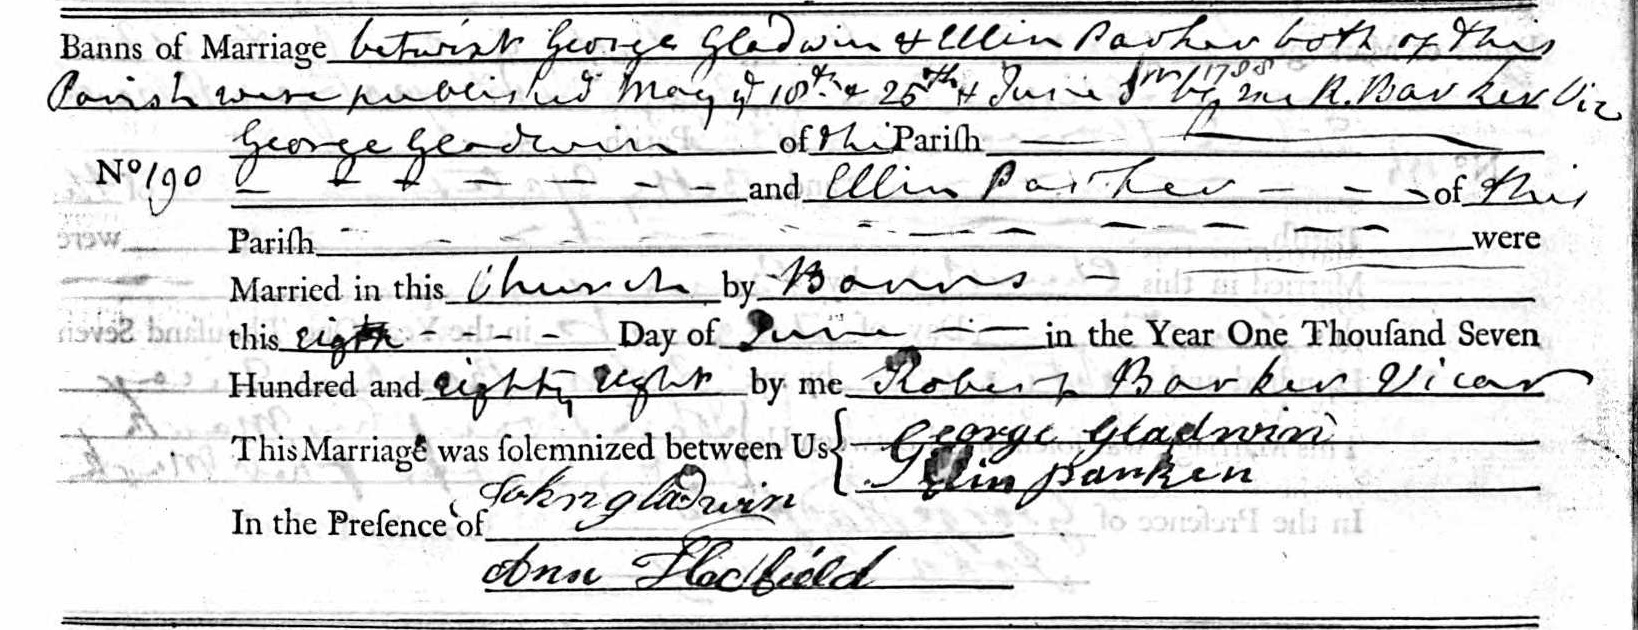 Banns of Marriage betwixt George Gladwin & Ellin Parker both of this
Parish were published May ye 18th & 25th & June 1st 1788 by me R. Barker Vic
George Gladwin of this Pariſh
No 190 and Ellin Parker of this
Pariſh were
Married in this Church by Banns
this eighth Day of June in the Year One Thouſand Seven
Hundred and eighty eight by me Robert Barker Vicar
This Marriage was ſolemnized between Us { George Gladwin
Ellin parker
In the Preſence of John gladwin
Ann Hadfield